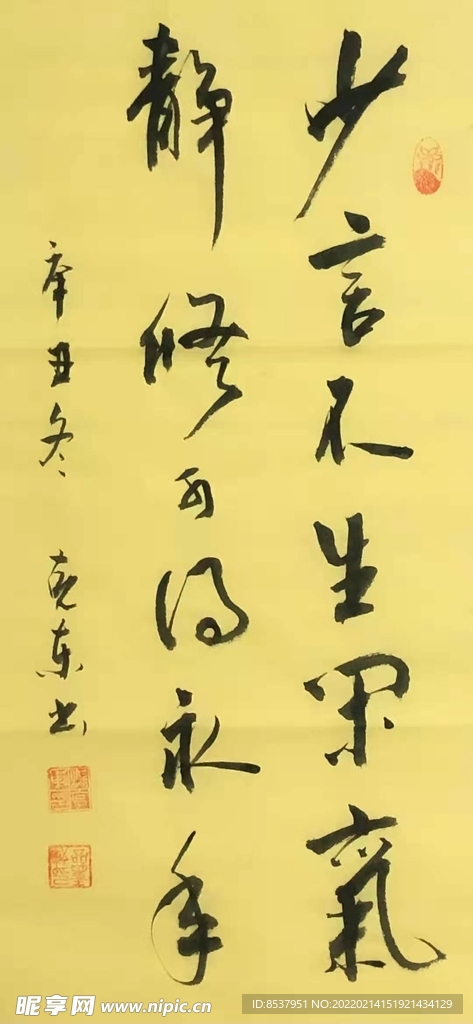 少言不生闲氣
静修可得永年
辛丑冬 克東书
昵享网 www.nipic.cn
ID:8537951 NO:20220214151921434129